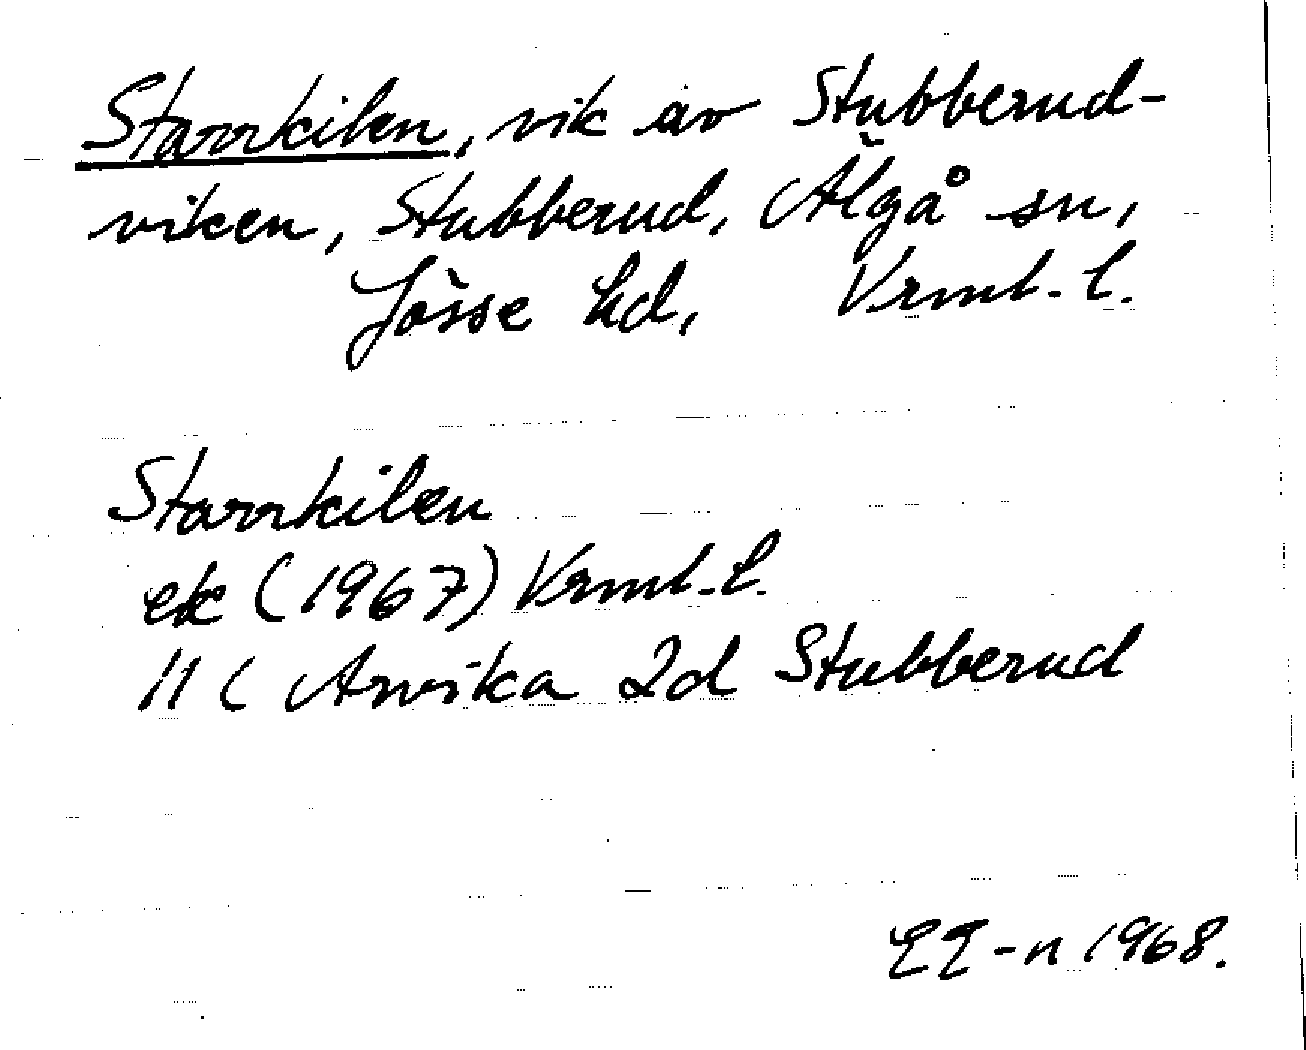 Starrkilen, vik av Stubberud-
viken, Stubberud, Älgå sn,
Jösse hd, Vrml. l.
Starrkilen
ek (1967) Vrml. l.
11 C Arvika 2d Stubberud
1968.